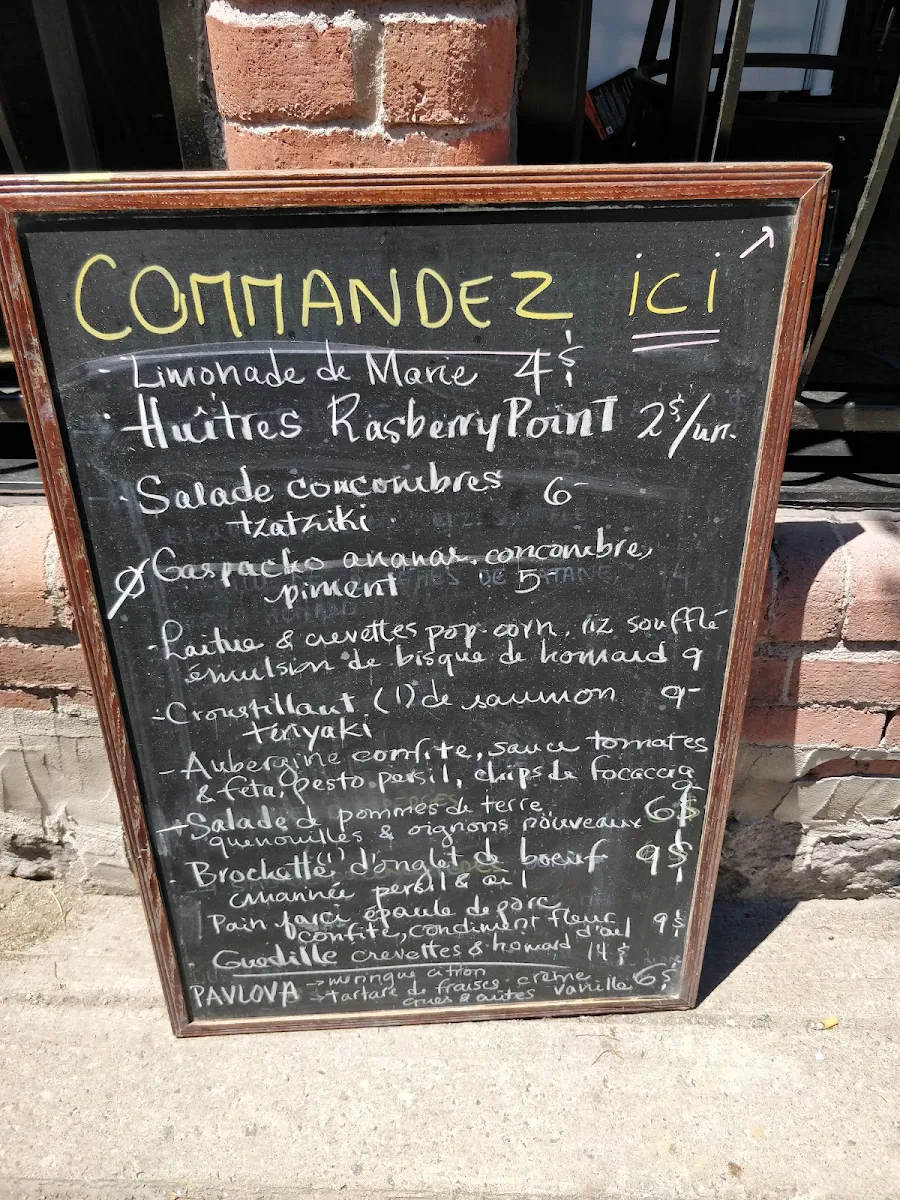 COMMANDEZ ici ↗
· Limonade de Marie 4$
· Huîtres Rasberry Point 2$/un.
· Salade concombres 6-
tzatziki
Ø Gaspacho ananas, concombre,
piment 5
· Laitue & crevettes pop-corn, riz soufflé
émulsion de bisque de homard 9
- Croustillant (1) de saumon 9-
teriyaki
- Aubergine confite, sauce tomates
& feta, pesto persil, chips de focaccia
9
- Salade de pommes de terre,
quenouilles & oignons nouveaux 6$
· Brochette (1) d'onglet de boeuf 9$
marinée persil & ail
Pain farci épaule de porc
confite, condiment fleur d'ail 9$
Guedille crevettes & homard 14$
PAVLOVA → meringue citron
→ tartare de fraises, crème
crues & cuites vanille 6$